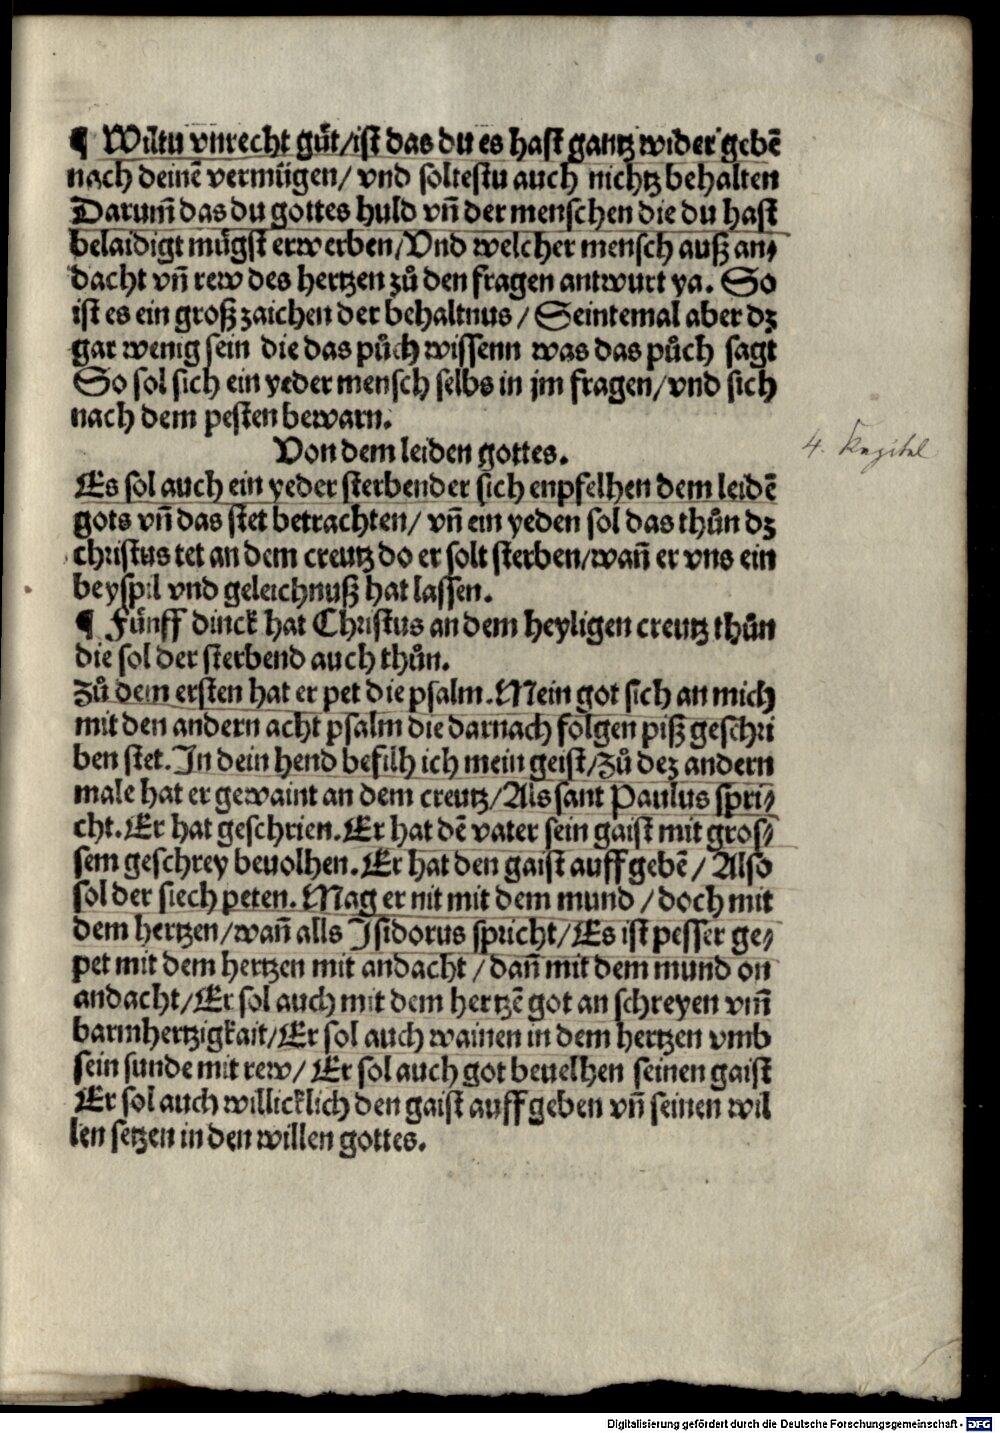 ¶ Wiltu vnrecht gůt/ist das du es hast gantz wider gebē
nach deinē vermügen/ vnd soltestu auch nichtz behalten
Darum̃ das du gottes huld vñ der menschen die du hast
belaidigt mügst erwerben/Vnd welcher mensch auß an⸗
dacht vñ rew des hertzen zů den fragen antwurt ya. So
ist es ein groß zaichen der behaltnus / Seintemal aber dz
gar wenig sein die das půch wissenn was das půch sagt
So sol sich ein yeder mensch selbs in jm fragen/vnd sich
nach dem pesten bewarn.
Von dem leiden gottes.
4. Kapitel
Es sol auch ein yeder sterbender sich enpfelhen dem leidē
gots vñ das stet betrachten/ vñ ein yeden sol das thůn dz
christus tet an dem creutz do er solt sterben/wañ er vns ein
beyspil vnd geleichnuß hat lassen.
¶ Fünff dinck hat Christus an dem heyligen creutz thůn
die sol der sterbend auch thůn.
Zů dem ersten hat er pet die psalm. Mein got sich an mich
mit den andern acht psalm die darnach folgen piß geschri
ben stet. In dein hend befilh ich mein geist/Zů dez andern
male hat er gewaint an dem creutz/Als sant Paulus spri⸗
cht. Er hat geschrien. Er hat dē vater sein gaist mit gros⸗
sem geschrey beuolhen. Er hat den gaist auff gebē / Also
sol der siech peten. Mag er nit mit dem mund / doch mit
dem hertzen/wañ alls Isidorus spricht/Es ist pesser ge⸗
pet mit dem hertzen mit andacht / dañ mit dem mund on
andacht/Er sol auch mit dem hertzē got an schreyen vm̃
barmhertzigkait/Er sol auch wainen in dem hertzen vmb
sein sunde mit rew/ Er sol auch got beuelhen seinen gaist
Er sol auch willicklich den gaist auff geben vñ seinen wil
len setzen in den willen gottes.
Digitalisierung gefördert durch die Deutsche Forschungsgemeinschaft - DFG